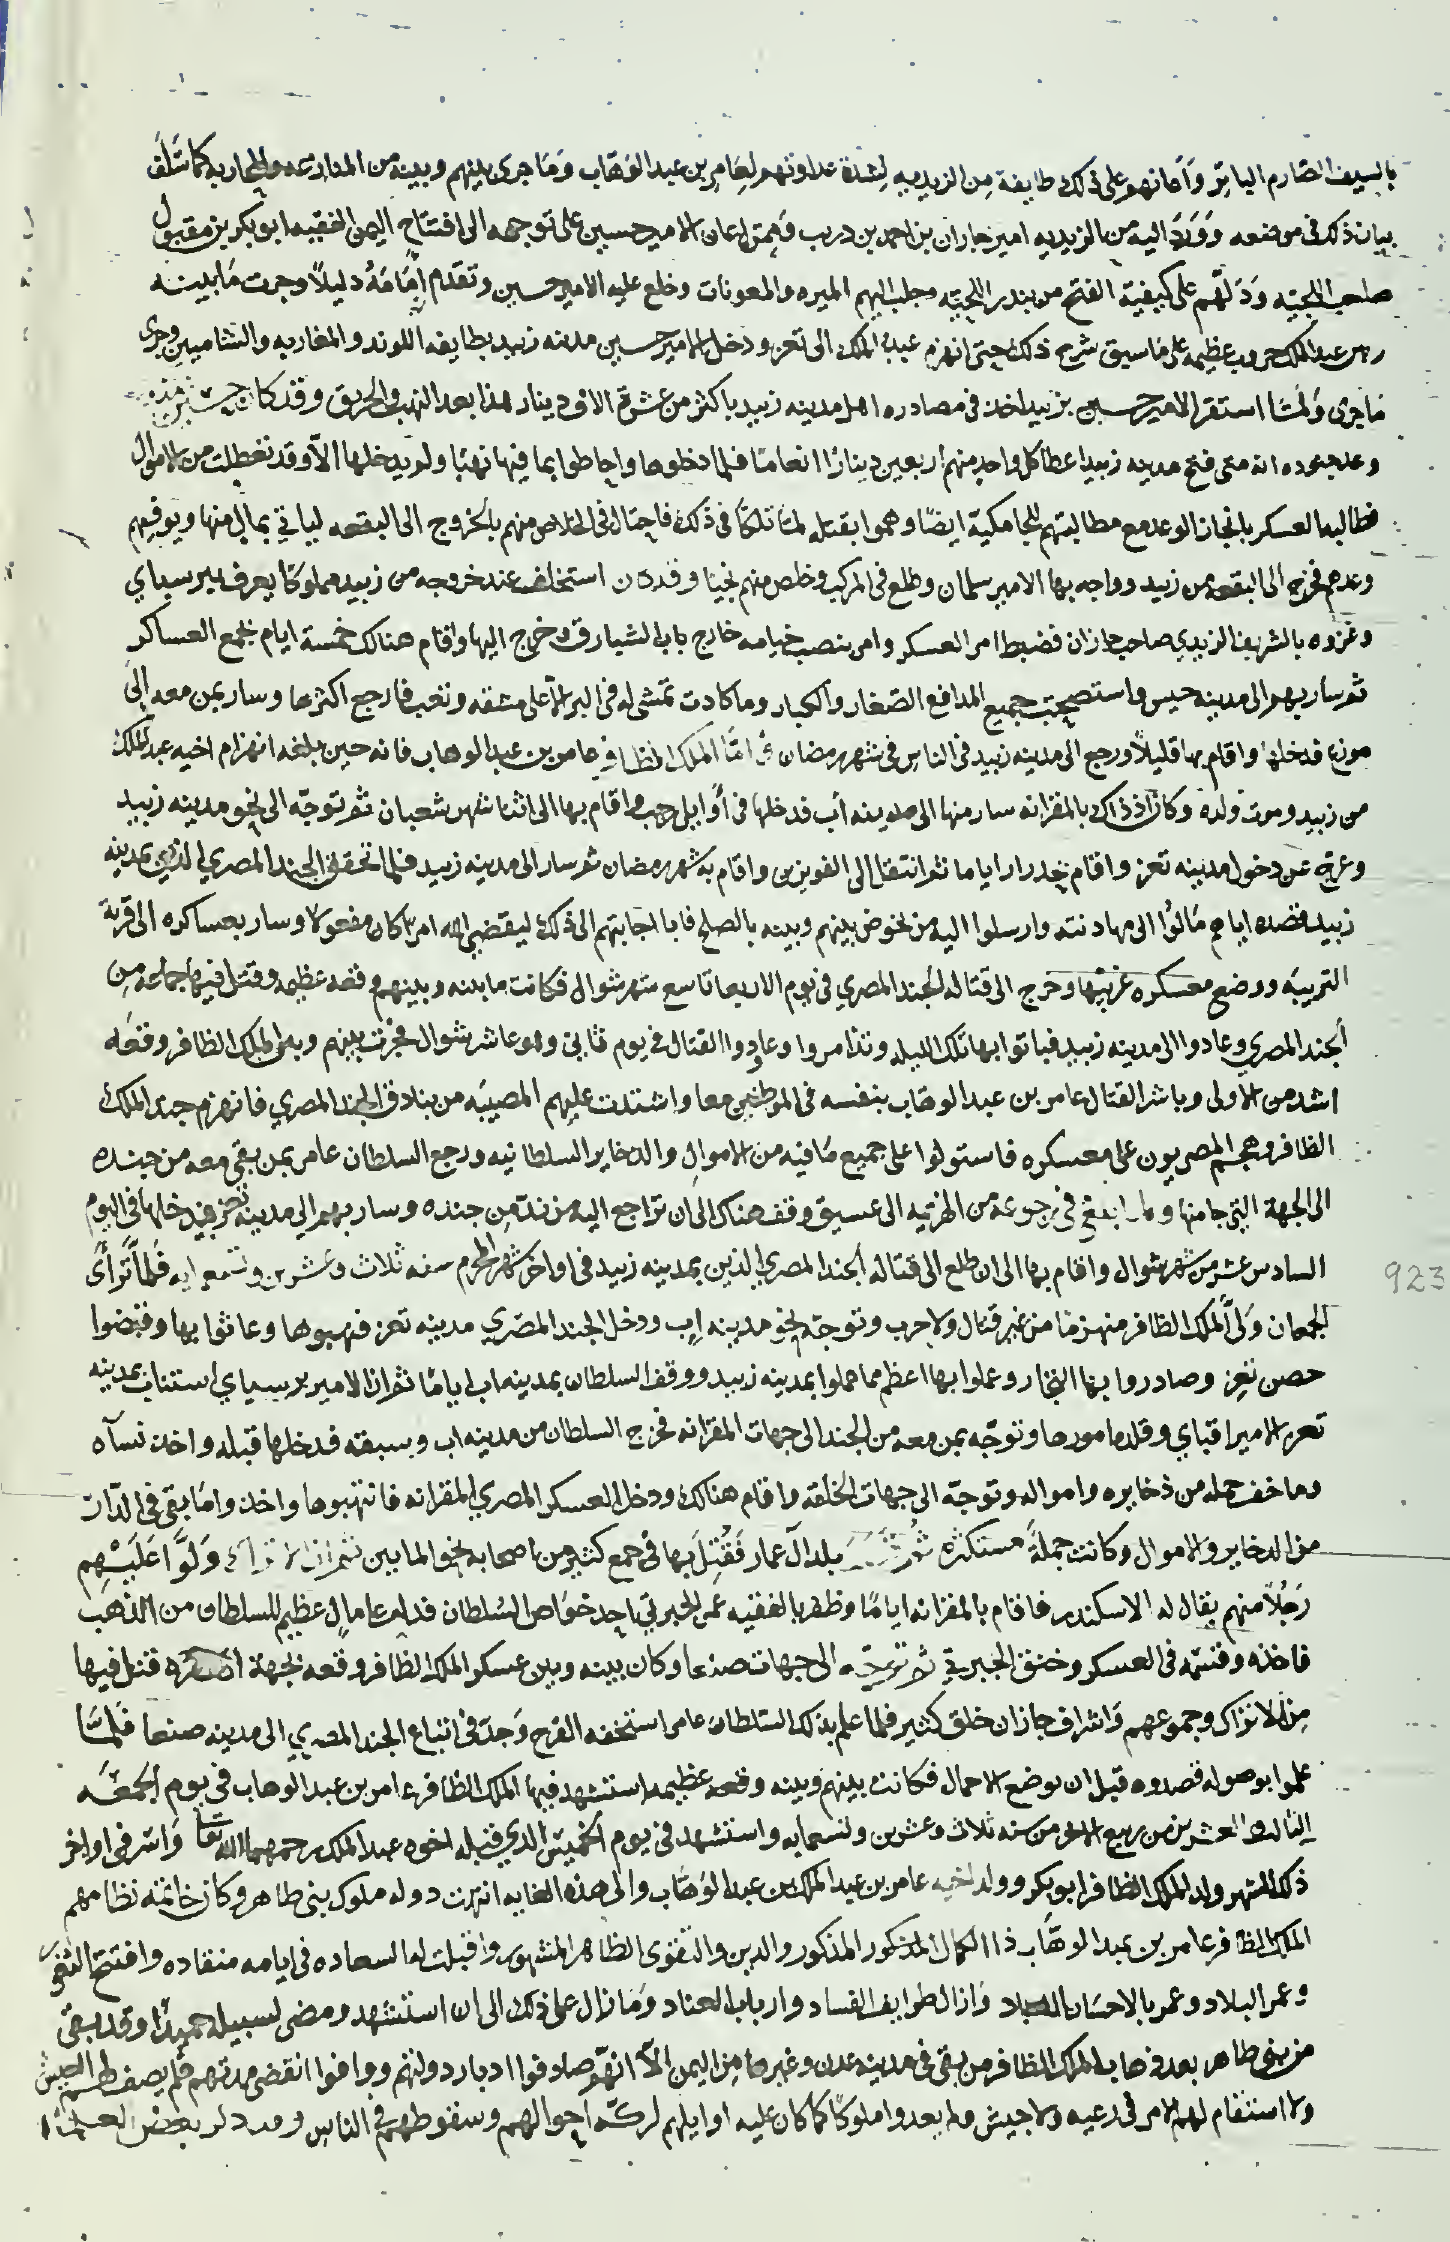 بالسيف الصارم الباتر وأعانهم على ذلك طايفة من الزيديه لشدة عداوتهم لعامر بن عبد الوهاب وما جرى بينهم وبينه من المنازعه والمحاربه كما سلف
بيان ذلك في موضعه ووردَ اليه من الزيديه امير جازان بن احمد بن دريب وممن اعان الامير حسين على توجهه الى افتتاح اليمن الفقيه ابو بكر بن مقبول
صاحب اللحيّه ودلّهم على كيفية الفتح من بندر اللحيّه وجلب اليهم الميره والمعونات وخلع عليه الامير حسين وتقدم أمامَهُ دليلاً وجرت ما بينه
وبين عبد الملك حروب عظيمه على ما سبق شرح ذلك حتى انهزم عبد الملك الى تعز ودخل الامير حسين مدينه زبيد بطايفه اللوند والمغاربه والشاميين وجرى
ما جرى ولمّا استقر الامير حسين بزبيد اخذ في مصادره اهل مدينه زبيد باكثر من عشرة الاف دينار هذا بعد النهب والحريق وقد كان حسين
وعد جنوده انه متى فتح مدينه زبيد اعطا كل واحد منهم اربعين دينارًا انعامًا فلما دخلوها واحاطوا بما فيها نهبًا ولم يدخلها الاّ وقد تعطلت من الاموال
فطالبه العسكر بانجاز الوعد مع مطالبتهم للجامكية ايضًا وهموا بقتله لمّا تلكأ في ذلك فاحتال في الخلاص منهم بالخروج الى البقعه لياتي بمال منها ويوفيهم
وعدهم فخرج الى البقعه من زبيد وواجه بها الامير سلمان وطلع في المركب وخلص منهم نجيًا وقد كان استخلف عند خروجه من زبيد مملوكًا يعرف ببرسباي
وعززه بالشريف الزيدي صاحب جازان فضبط امر العسكر وامر بنصب خيامه خارج باب الشبارق وخرج اليها واقام هنالك خمسة ايام لجمع العساكر
ثم سار بهم الى مدينه حيس واستصحب جميع المدافع الصّغار والكبار وما كادت تمشي له في البر الاّ على مشقه وتعب فارجع اكثرها وسار بمن معه إلى
موزع فدخلها واقام بها قليلاً ورجع الى مدينه زبيد في الناس في شهر رمضان وأمّا الملك الظافر عامر بن عبد الوهاب فانه حين بلغه انهزام اخيه عبد الملك
من زبيد وموت ولده وكان اذ ذاك بالمقرانه سار منها الى مدينه أب فدخلها في أوايل رجب واقام بها الى اثنا شهر شعبان ثم توجّه الى نحو مدينه زبيد
وعرج عن دخول مدينه تعز واقام بحدرار اياما ثم انتقل الى القويزين واقام به شهر رمضان ثم سار الى مدينه زبيد فلما تحقق الجند المصري الذي بمدينه
زبيد قصده اياهم مالُوا الى مهادنته وارسلوا اليه من يخوض بينهم وبينه بالصلح فابا اجابتهم الى ذلك ليقضي الله امرًا كان مفعولا وسار بعساكره الى قرية
التريبَه ووضع معسكره غربيّها وخرج الى قتاله الجند المصري في يوم الاربعا تاسع شهر شوال فكانت ما بينه وبينهم وقعه عظيمه وقتل فيها جماعه من
الجند المصري وعادوا الى مدينه زبيد فباتوا بها تلك الليله وتذامروا وعادوا القتال في يوم ثاني وهو عاشر شوال فجرت بينهم وبين الملك الظافر وقعَه
اشد من الأولى وباشر القتال عامر بن عبد الوهّاب بنفسه في الموطنين معا واشتدت عليهم المصيبَه من بنادق الجند المصري فانهزم جند الملك
الظافر وهجم المصريون على معسكره فاستولوا على جميع مَا فيه من الاموال والذخاير السلطانيه ورجع السلطان عامر بمن بقي معه من جنده
الى الجهة التي جا منها في رجوعه من الهزيمه الى عسيق وقف هناك الى ان تراجع اليه من ندّ من جنده وسار بهم الى مدينة تعز فدخلها في اليوم
السادس عشر من شهر شوال واقام بها الى ان طلع الى قتاله الجند المصري الذين بمدينه زبيد في اواخر شهر المحرم سنه ثلاث وعشرين وتسعمايه فلمّا ترأى
الجمعان وَلَّى الملك الظافر منهزمًا من غير قتال ولا حرب وتوجّه نحو مدينه اب ودخل الجند المصري مدينه تعز فنهبوها وعاثوا بها وقبضوا
حصن تعز وصادروا بها التجار وعملوا بها اعظم مما عملوا بمدينه زبيد ووقف السلطان بمدينه اب ايامًا ثم ان الامير برسباي استناب بمدينه
تعز الامير اقباي وقلده امورها وتوجّه بمن معه من الجند الى جهات المقرانه فخرج السلطان من مدينه اب وسبقه فدخلها قبله واخذ نسآه
وما خف حمله من ذخايره وامواله وتوجّه الى جهات الخلقه واقام هنالك ودخل العسكر المصري المقرانه فانتهبوها واخذوا ما بقي في الدّار
من الذخاير والاموال وكانت جملةً مستكثره ثم بلد آل عمار فَقُتِلَ بها في جمع كثير من اصحابه نحو المايين ثم ان الاتراك ولَّوا عَليْهِم
رَجُلاً منهم يقال له الاسكندر فاقام بالمقرانه ايامًا وظفر بالفقيه عمر الجبرتي احد خوّاص السُلطان فدلهم على مالٍ عظيم للسلطان من الذهب
فاخذه وقسّمه في العسكر وخنق الجبرتي ثم توجّه الى جهات صنعا وكان بينه وبين عسكر الملك الظافر وقعه بجهة قتل فيها
من الاتراك وجموعهم وَاشراف جازان خلق كثير فلما علم بذلك السّلطان عامر استخفه الفرح وَجدّ في اتباع الجند المصري الى مدينه صنعا فلمّا
علموا بوصوله قصدوه قبل ان يوضع الاحمال فكانت بينهم وبينه وقعه عظيمه استشهد فيها الملك الظافر عامر بن عبد الوهاب في يوم الجمعَه
الثالث والعشرين من ربيع الاخر من سنه ثلاث وعشرين وتسعمايه واستشهد في يوم الخميس الذي قبله اخوه عبد الملك رحمهما الله تعا وَاسر في اواخر
ذلك الشهر ولد الملك الظافر ابو بكر وولد اخيه عامر بن عبد الملك بن عبد الوهّاب والى هذه الغايه انتهت دوله ملوك بني طاهر وكان خاتمة نظامهم
الملك الظافر عامر بن عبد الوهّاب ذا الكمال المذكور المذكور والدين والتقوى الظاهر المشهور واقبلت له السعاده في ايامه منقاده وافتتح الثغور
وعمر البلاد وعمر بالاحسَان العباد وَازال طوايف الفساد وارباب العناد وَما زال على ذلك الى ان استشهد ومضى لسبيله حميدًا وقد بقى
من بني طاهر بعد ذهاب الملك الظافر من بقي في مدينه عدن وغيرها من اليمن الاّ انهم صادفوا ادبار دولتهم ووافوا انقضى مدتهم فلم يصف لهم العيش
ولا استقام لهم الامر في رعيه ولا جيش ولم يعدوا ملوكًا كما كان عليه اوايلهم لركّه احوالهم وسقوطهم في الناس بعض العلماء
923